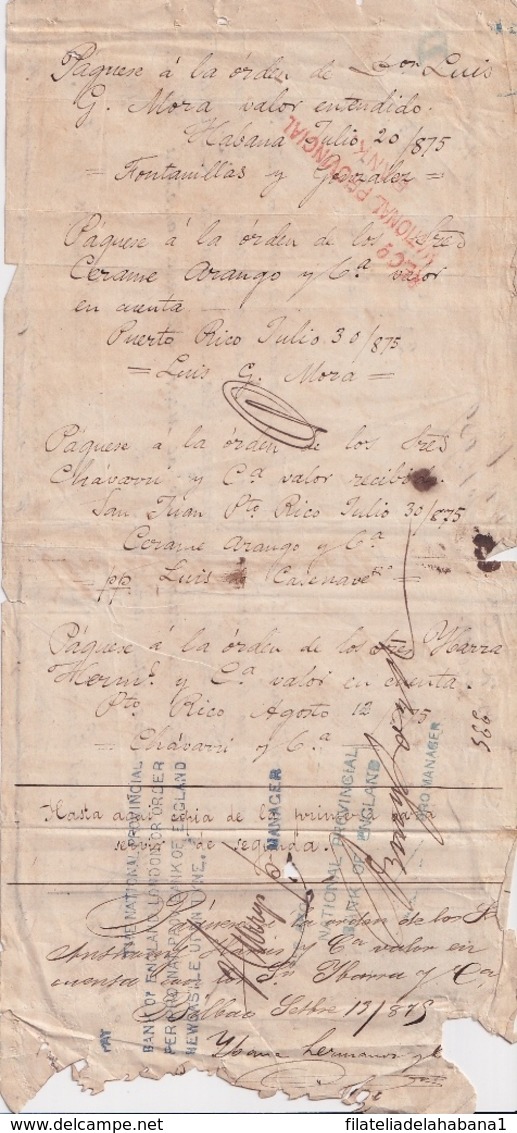 Páguese á la órden de Don Luis
G. Mora valor entendido.
Havana Julio 20/875
= Fontanillas y Gonzalez =
NATIONAL PROVINCIAL
BANK
Páguese á la órden de los Sres
Cerame Arango y Cª. valor
en cuenta
Puerto Rico Julio 30/875
= Luis G. Mora =
Páguese a la órden de los Sres
Chávarri y Cª valor recibido.
San Juan Pto Rico Julio 30/875
Cerame Arango y Cª
= pp Luis de Casenave =
Páguese á la órden de los Sres Ybarra
Hermos. y Cª valor en cuenta.
Pto. Rico Agosto 12/875
= Chávarri y Cª
566
Hasta aqui copia de la primera
servir de segunda.
PAY
THE NATIONAL PROVINCIAL
BANK OF ENGLAND LONDON OR ORDER
PER PRO NATL PROV BANK OF ENGLAND
NEWCASTLE UPON TYNE.
MANAGER
NATIONAL PROVINCIAL
BANK OF ENGLAND
PRO MANAGER
Páguese á la orden de los Sr
y Cª valor en
cuenta con los Sr Ybarra y Cª
Bilbao Setbre 13/875
Ybarra hermanos y Cª
filateliadelahabana1
delcampe.net
filateliadelahabana1